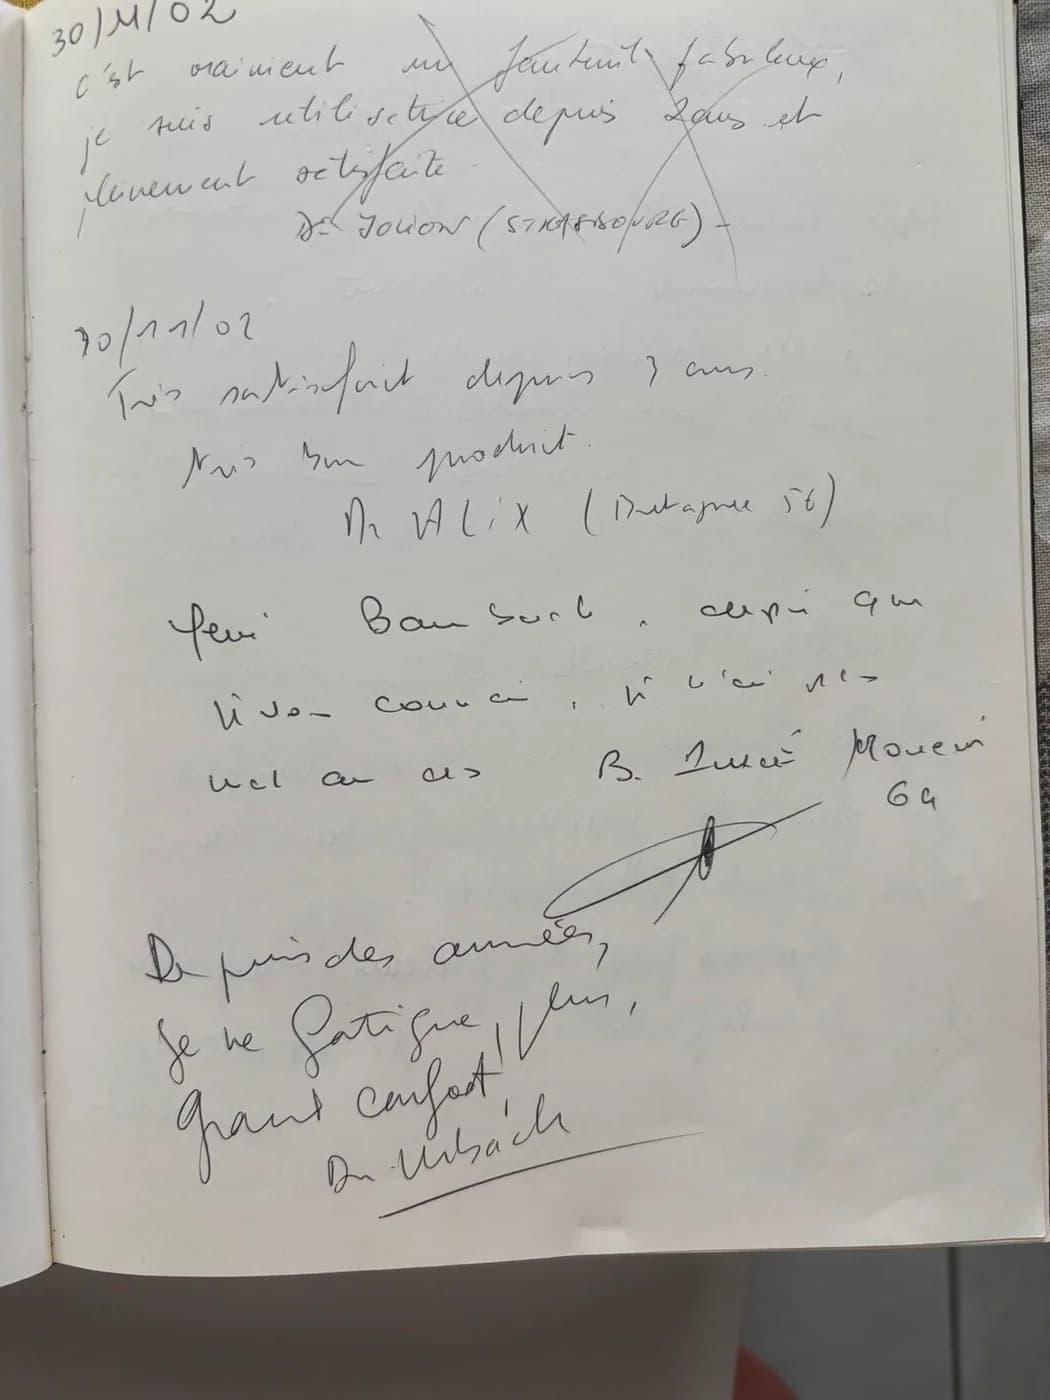 30/11/02
c'est vraiment un fauteuil fabuleux,
je suis utilisatrice depuis 2 ans et
pleinement satisfaite
Dr (STRASBOURG) -
30/11/02
Très satisfait depuis 3 ans.
très bon produit.
Dr ALIX (Bretagne 56)
Merci Bambach, depuis que
je n'ai plus
mal au dos B.
64
Depuis des années,
Je ne fatigue plus,
Grand confort,
Dr Urbach